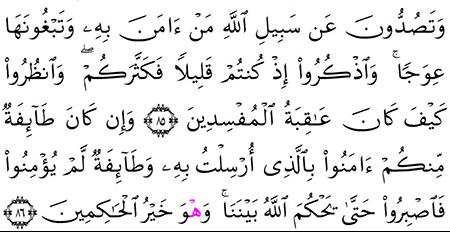 وَتَصُدُّونَ عَن سَبِيلِ ٱللَّهِ مَنْ ءَامَنَ بِهِۦ وَتَبْغُونَهَا
عِوَجًاۚ وَٱذْكُرُوٓا۟ إِذْ كُنتُمْ قَلِيلًا فَكَثَّرَكُمْۖ وَٱنظُرُوا۟
كَيْفَ كَانَ عَـٰقِبَةُ ٱلْمُفْسِدِينَ ﴿٨٥﴾ وَإِن كَانَ طَآئِفَةٌ
مِّنكُمْ ءَامَنُوا۟ بِٱلَّذِىٓ أُرْسِلْتُ بِهِۦ وَطَآئِفَةٌ لَّمْ يُؤْمِنُوا۟
فَٱصْبِرُوا۟ حَتَّىٰ يَحْكُمَ ٱللَّهُ بَيْنَنَاۚ وَهْوَ خَيْرُ ٱلْحَـٰكِمِينَ ﴿٨٦﴾